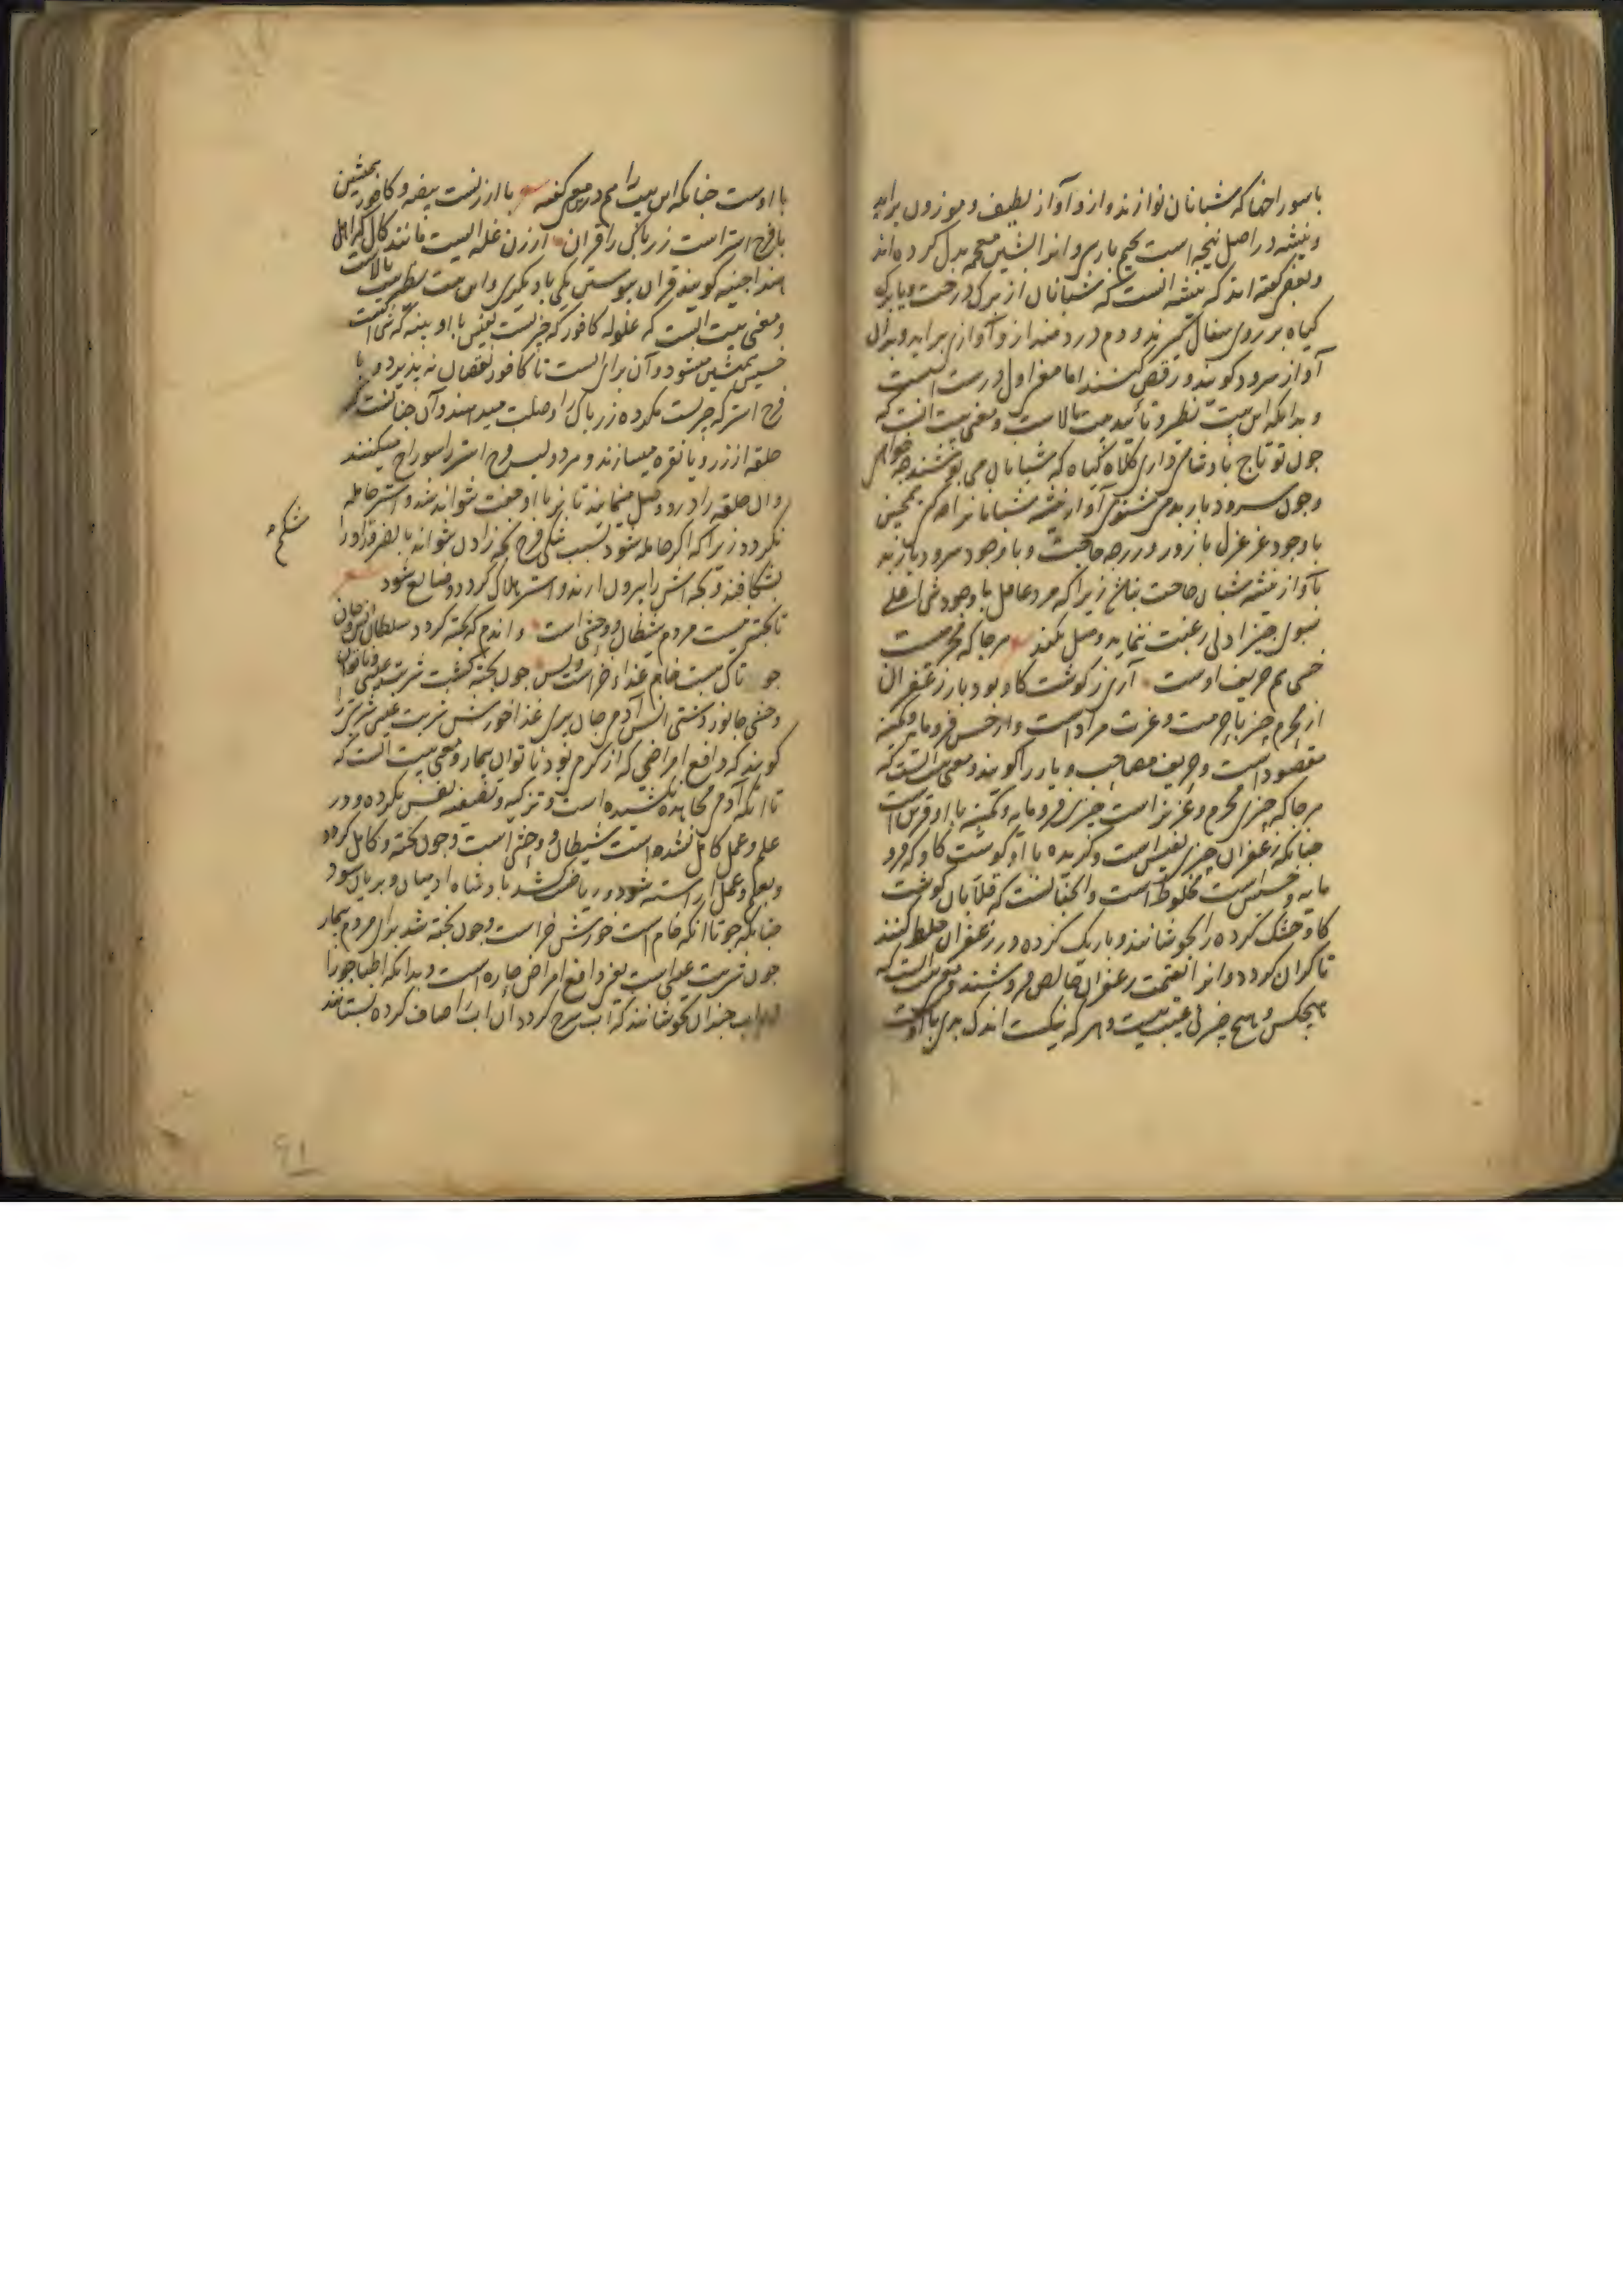 با سوراخها که شبانان نوازند و ازو آواز لطیف و موزون براید
و نیشه در اصل نیجه است بجیم پارسی و انرا بشین معجمه بدل کرده اند
و بعضی گفته اند که نیشه انست که شبانان از برک درخت و یا برک
کیاه بر روی سفال گیرند و دم درو دمند ازو آوازی براید و بدان
آواز سرود کویند و رقص کنند اما معنی اول درست است
و بدانکه این بیت نظیر و تائید بیت بالاست و معنی بیت انست که
چون تو تاج پادشاهی داری کلاه کیاه که شبانان می پوشند چه خواهی
و چون سرود باربد می شنوی آواز نیشه شبانانرا همچنین
با وجود غزغزل بازور ورزجه حاجت و با وجود سرود باربد
بآواز نیشه شبان حاجت نباشد زیرا که مرد عاقل با وجود شی اعلی
بسوی چیز ادنی رغبت ننماید و میل نکند هرجا که محرمست
خسی هم حریف اوست آری ز کوشت کاو بود بار زعفران
از محرم چیز با حرمت و عزت مراد است و از خس فرومایه و کمینه
مقصود است و حریف مصاحب و یار را کویند و معنی بیت انست که
هرجا که چیزی محرم و عزیز است چیزی فرومایه و کمینه با او قرین است
چنانکه زعفران چیزی نفیس است و گزیده با او کوشت کاو که فرو
مایه و خسیس است مخلوط است و آنچنانست که قلابان کوشت
کاو خشک کرده را بجوشانند و باریک کرده در زعفران خلط کنند
تا کران کردد و انرا بقیمت زعفران خالص فروشند و معنی انست که
هیچکس و هیچ چیز بی عیب نیست و هر که نیکست اندک بدی با اوست
با اوست چنانکه این بیت را هم درین معنی گفته با ارزنست بیضه و کافور همنشین
با فرج استر است زر پاک را قران ارزن غله ایست مانند کال که اهل
هند اجینه کویند قران پیوستن یکی با دیکری و این بیت نظیر بیت بالاست
و معنی بیت انست که غلوله کافور که چیزیست نفیس با او بینه که شی
خسیس همنشین میشود و آن برای انست تا کافور نقصان نه پذیرد و با
فرج استر که چیزیست مکروه زر پاک را وصلت میدهند و آن چنانست که
حلقه از زر و یا نقره میسازند و هر دو لب فرج استر را سوراخ میکنند
و ان حلقه را درو وصل مینمایند تا نر با او جفت نتواند شد و استر حامله
نکردد زیرا که اگر حامله شود بسبب تنکی فرج بچه زادن نتواند بالضرور او را
شکم
بشکافند و بچه اش را بیرون ارند و استر هلاک کردد و ضایع شود
تا پخته نیست مردم شیطان و وحشی است و اندم که پخته کردد سلطان انس و جان
جو تا که هست خام غذاء خر است و بس چون پخته کشت شربت عیسی ناتوان
وحشی جانور دشتی انس آدمی جان پری غذا خورش شربت عیسی شربتی را
کویند که دافع امراضی که از گرم بود ناتوان بیمار و معنی بیت انست که
تا انکه آدمی مجاهده نکشیده است و تزکیه و تصفیه نفس نکرده و در
علم و عمل کامل نشده است شیطان و وحشی است و چون پخته و کامل کردد
و بعلم و عمل اراسته شود و ریاضت کشد پادشاه ادمیان و پریان شود
چنانکه جو تا انکه خام است خورش خر است و چون پخته شد برای مردم بیمار
چون شربت عیسی است یعنی دافع امراض حاره است و بدانکه اطبا جو را
چندان بجوشانند که آب سرخ کردد ان اب را صاف کرده بستانند
۶۱